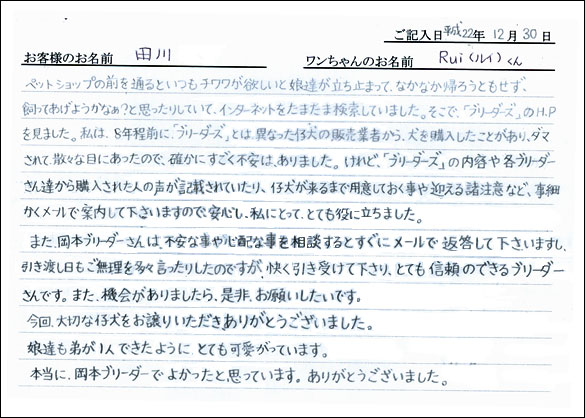 ご記入日平成22年12月30日
お客様のお名前 田川 ワンちゃんのお名前 Rui(ルイ)くん
ペットショップの前を通るといつもチワワが欲しいと娘達が立ち止まって、なかなか帰ろうともせず、
飼ってあげようかなぁ?と思ったりしていて、インターネットをたまたま検索していました。そこで、「ブリーダーズ」のH.P
を見ました。私は、8年程前に、「ブリーダーズ」とは異なった仔犬の販売業者から、犬を購入したことがあり、ダマ
されて散々な目にあったので、確かにすごく不安は、ありました。けれど、「ブリーダーズ」の内容や各ブリーダー
さん達から購入された人の声が記載されていたり、仔犬が来るまで用意しておく事や迎える諸注意など、事細
かくメールで案内して下さいますので、安心し、私にとって、とても役に立ちました。
また、岡本ブリーダーさんは、不安な事や心配な事を相談するとすぐにメールで返答して下さいますし、
引き渡し日もご無理を多々言ったりしたのですが、快く引き受けて下さり、とても信頼のできるブリーダー
さんです。また、機会がありましたら、是非、お願いしたいです。
今回、大切な仔犬をお譲りいただきありがとうございました。
娘達も弟が1人できたように、とても可愛がっています。
本当に、岡本ブリーダーでよかったと思っています。ありがとうございました。